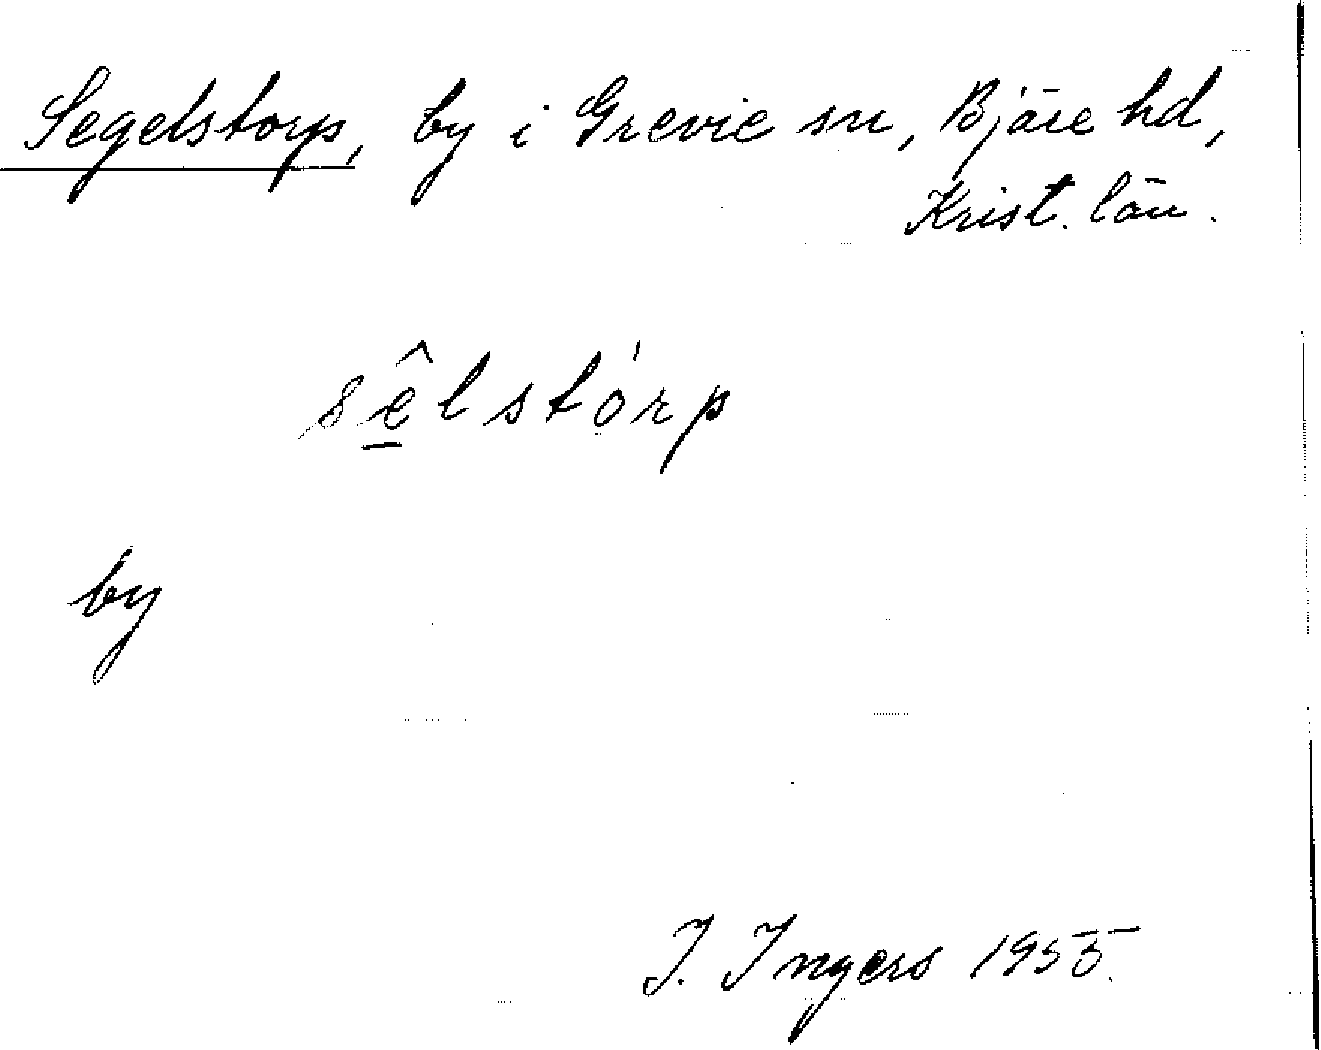 Segelstorp, by i Grevie sn, Bjäre hd,
Krist. län.
sê̱lstórp
by
I. Ingers 1955.